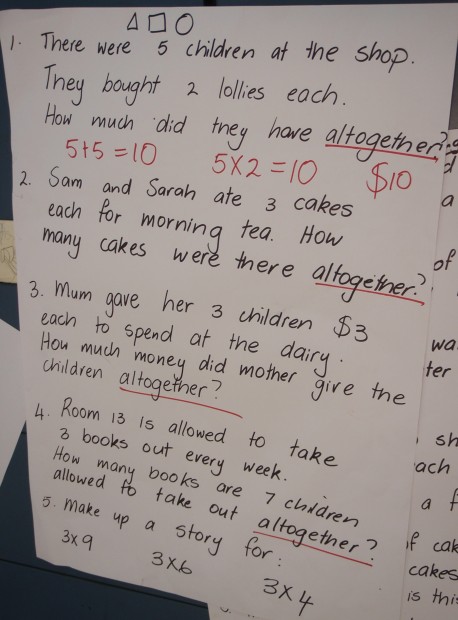 1. There were 5 children at the shop.
They bought 2 lollies each.
How much did they have altogether?
5+5=10 5x2=10 $10
2. Sam and Sarah ate 3 cakes
each for morning tea. How
many cakes were there altogether?
3. Mum gave her 3 children $3
each to spend at the dairy.
How much money did mother give the
children altogether?
4. Room 13 is allowed to take
3 books out every week.
How many books are 7 children
allowed to take out altogether?
5. Make up a story for:
3x9 3x6 3x4
a
of
wa
ter
sh
ach
a f
f cak
cakes
is this